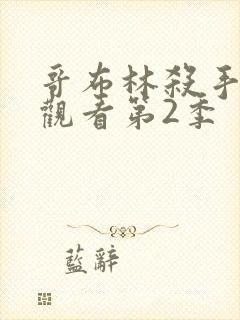 哥布林殺手
觀看第2季
藍辭